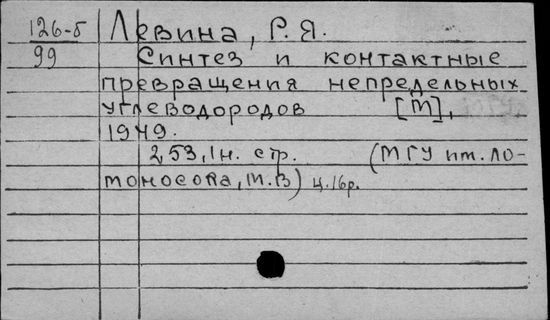 126-б Левина, Р. Я.
99 Синтез и контактные
превращения непредельных
углеводородов [М],
1949.
253, 1н. стр. (МГУ им. Ло-
моносова, М. В) ц. 16р.